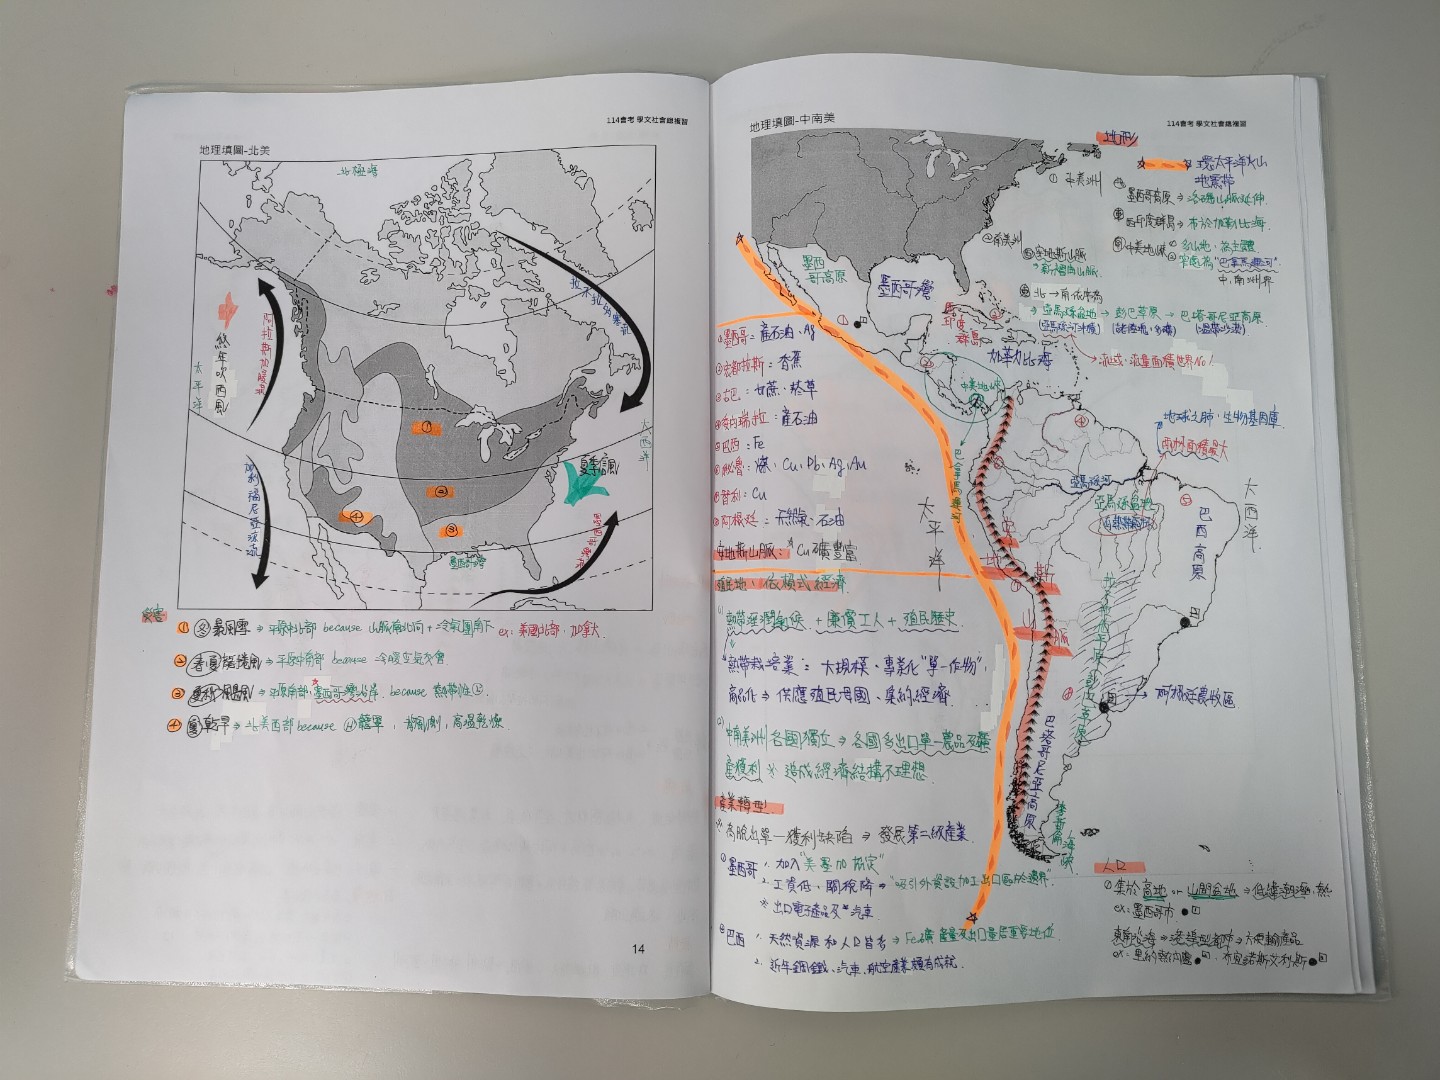 114會考 學文社會總複習
地理填圖-北美
北極海
拉不拉多寒流
阿拉斯加暖流
終年吹西風
太平洋
大西洋
夏季信風
①
②
③
④
加利福尼亞涼流
墨西哥灣
災害
① 冬暴風雪 → 平原中北部 because 山脈南北向+冷氣團南下 ex: 美國北部、加拿大
② 春夏龍捲風 → 平原中南部 because 冷暖空氣交會
③ 夏秋颶風 → 平原南部、墨西哥灣沿岸 because 熱帶性
④ 夏乾旱 → 北美西部 because 背風側,高溫乾燥
14
114會考 學文社會總複習
地理填圖-中南美
地形
環太平洋火山
地震帶
① 中美洲
墨西哥高原 → 洛磯山脈延伸
西印度群島 → 布於加勒比海
中美地峽 ① 多山地、為主體
② 窄處為"巴拿馬運河"
中、南洲界
②南美洲
安地斯山脈
北 → 南依序為
→ 亞馬孫盆地 → 彭巴草原 → 巴塔哥尼亞高原
→ 流域、流量面積世界No1
墨西
哥高原
墨西哥灣
西印度
群島
加勒比海
中美地峽
巴拿馬運河
① 墨西哥:產石油、Ag
② 宏都拉斯:香蕉
③ 古巴:甘蔗、菸草
④ 委內瑞拉:產石油
⑤ 巴西:Fe
⑥ 秘魯:Cu、Pb、Ag、Au
⑦ 智利:Cu
⑧ 阿根廷:天然氣、石油
安地斯山脈:Cu礦豐富
地球之肺、生物基因庫
雨林面積最大
亞馬孫河
亞馬孫盆地
巴西高原
大西洋
太平洋
安地斯山脈
阿根廷農牧區
巴塔哥尼亞高原
麥哲倫海峽
殖民地、依賴式經濟
(1) 熱帶溼潤氣候 + 廉價工人 + 殖民歷史
熱帶栽培業:大規模、專業化"單一作物",
商品化 → 供應殖民母國、集約經濟
(2) 中南美洲各國獨立 → 各國多出口單一農品及礦
產獲利 造成經濟結構不理想
產業轉型
為脫出單一獲利缺陷 → 發展第二級產業
① 墨西哥 1. 加入"美墨加協定"
2. 工資低、關稅降 → "吸引外資設加工出口區於邊界"
※ 出口電子產品及汽車
② 巴西 1. 天然資源和人口皆多 → Fe礦產量及出口量居重要地位
2. 近年鋼鐵、汽車、航空產業頗有成就
人口
① 集於高地 or 山間盆地 → 低溼潮溼、熱
ex: 墨西哥市
東部沿海 → 港埠型都市 → 方便輸產品
ex: 里約熱內盧、布宜諾斯艾利斯